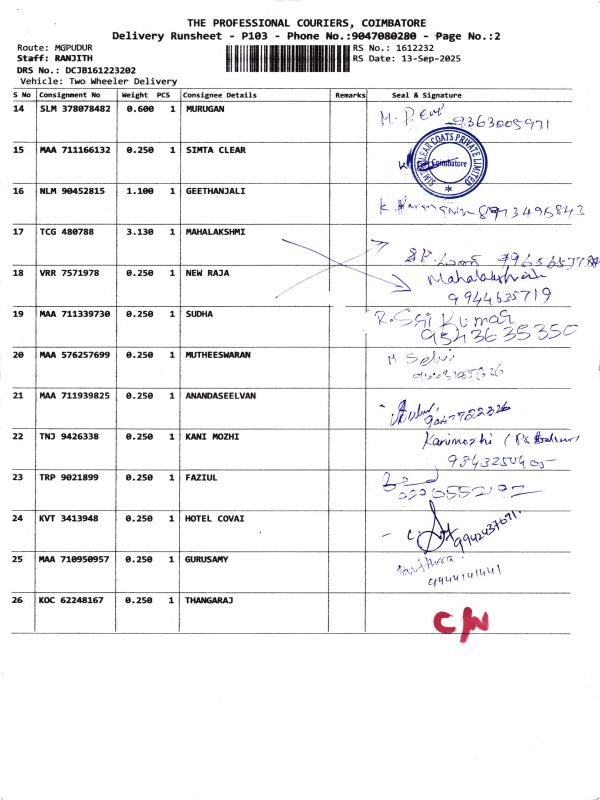 THE PROFESSIONAL COURIERS, COIMBATORE
Delivery Runsheet - P103 - Phone No.:9047080280 - Page No.:2
Route: MGPUDUR RS No.: 1612232
Staff: RANJITH RS Date: 13-Sep-2025
DRS No.: DCJB161223202
Vehicle: Two Wheeler Delivery
S No Consignment No Weight PCS Consignee Details Remarks Seal & Signature
14 SLM 378078482 0.600 1 MURUGAN
9363005971
15 MAA 711166132 0.250 1 SIMTA CLEAR
CLEAR COATS PRIVATE LIMITED
Coimbatore
16 NLM 90452815 1.100 1 GEETHANJALI
K.
17 TCG 480788 3.130 1 MAHALAKSHMI
18 VRR 7571978 0.250 1 NEW RAJA
Mahalakshmi
9944635719
19 MAA 711339730 0.250 1 SUDHA
R. Sri Kumar
9543635350
20 MAA 576257699 0.250 1 MUTHEESWARAN
M Selvi
21 MAA 711939825 0.250 1 ANANDASEELVAN
22 TNJ 9426338 0.250 1 KANI MOZHI
Kanimozhi
23 TRP 9021899 0.250 1 FAZIUL
24 KVT 3413948 0.250 1 HOTEL COVAI
9942437071
25 MAA 710950957 0.250 1 GURUSAMY
9944141441
26 KOC 62248167 0.250 1 THANGARAJ
C/N